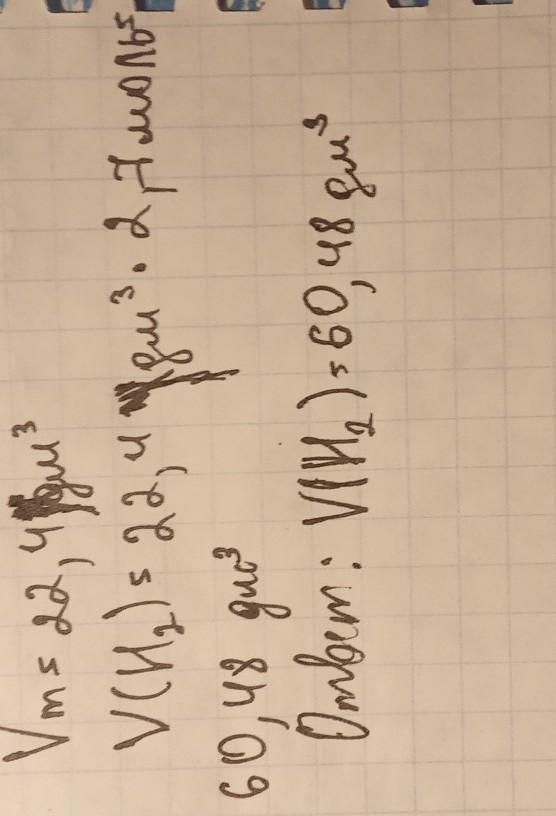 Vm = 22,4 дм³
V(H₂) = 22,4 дм³ · 2,7 моль =
60,48 дм³
Ответ: V(H₂) = 60,48 дм³